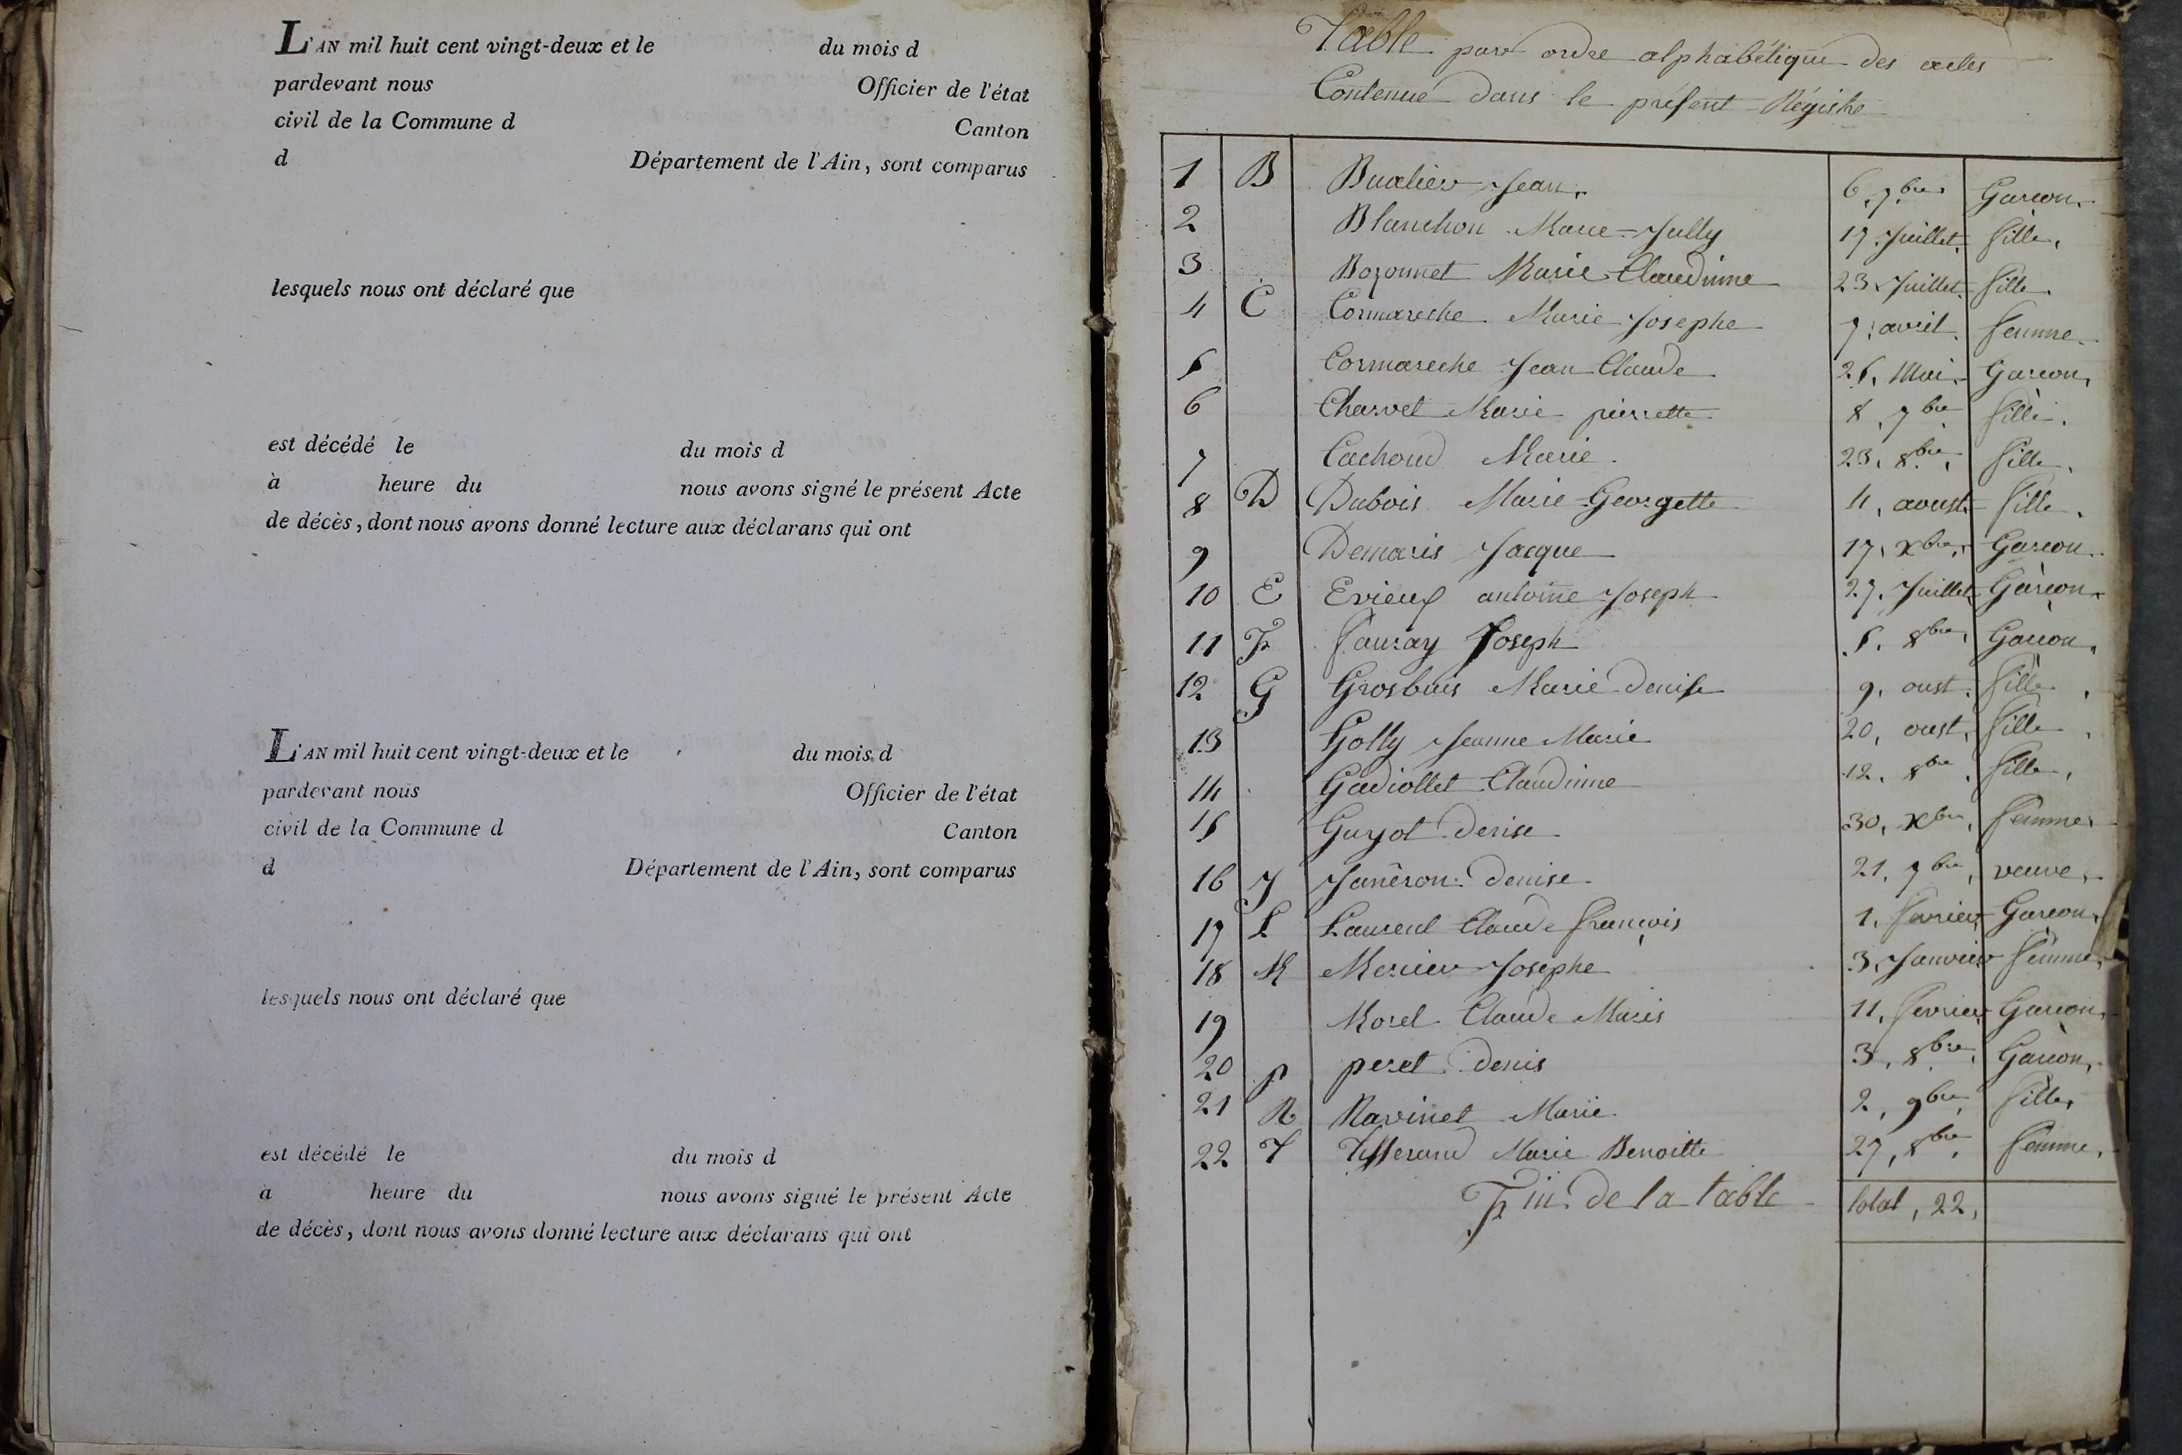 L'AN mil huit cent vingt-deux et le du mois d
pardevant nous Officier de l'état
civil de la Commune d Canton
d Département de l'Ain, sont comparus
lesquels nous ont déclaré que
est décédé le du mois d
à heure du nous avons signé le présent Acte
de décès, dont nous avons donné lecture aux déclarans qui ont
L'AN mil huit cent vingt-deux et le du mois d
pardevant nous Officier de l'état
civil de la Commune d Canton
d Département de l'Ain, sont comparus
lesquels nous ont déclaré que
est décédé le du mois d
à heure du nous avons signé le présent Acte
de décès, dont nous avons donné lecture aux déclarans qui ont
Table par ordre alphabétique des actes
Contenue dans le présent Régistre
1 B Jean 6, 7bre Garcon
2 Blanchon Marie Jully 17 Juillet fille
3 Bozonnet Marie Claudinne 23 Juillet fille
4 C Cormareche Marie Josephe 7 avril femme
5 Cormareche Jean Claude 25, Mai Garcon
6 Charvet Marie pierrette 8, 7bre fille
7 Cachoud Marie 23, 8bre fille
8 D Dubois Marie Georgette 4, aoust fille
9 Demaris Jacque 17, Xbre Garcon
10 E Evieux antoinne Joseph 27, Juillet Garcon
11 F Fauray Joseph 5, 8bre Garcon
12 G Grosbuis Marie denise 9, oust fille
13 Golly Jeanne Marie 20, oust fille
14 Gadiollet Claudinne 12, 8bre fille
15 Guyot denise 30, Xbre femme
16 J Janéron denise 21, 7bre, veuve
17 L Laurent Claude françois 1, fevrier Garcon
18 M Mercier Josephe 3, Janvier femme
19 Morel Claude Marie 11, fevrier Garcon
20 p peret denis 3, 8bre Garcon
21 R Ravinet Marie 2, 9bre fille
22 T Tisserand Marie Benoitte 27, 8bre femme
Fin de la table total, 22,